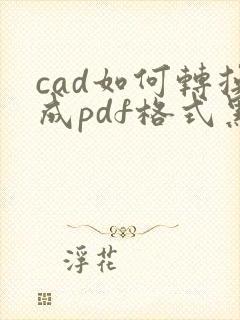 cad如何轉
成pdf格式
浮花